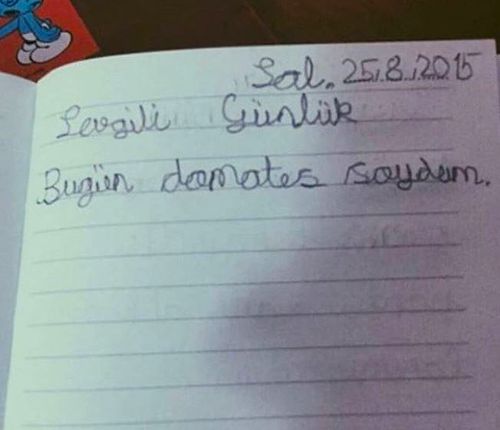 Sal. 25.8.2015
Sevgili Günlük
Bugün domates soydum.